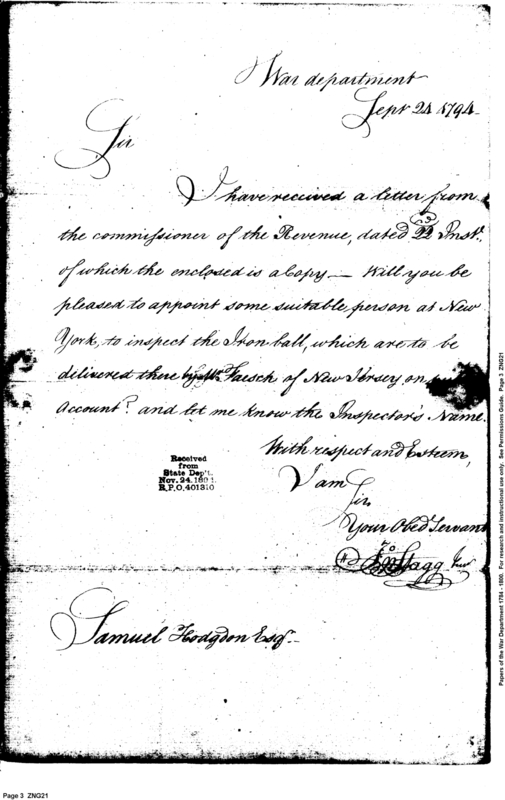 War department
Sept 24 1794
Sir
I have received a letter from
the commissioner of the Revenue, dated 22 Inst.
23
of which the enclosed is a Copy — Will you be
pleased to appoint some suitable person at New
York, to inspect the Iron ball, which are to be
delivered there by Mr. Faesch of New Jersey, on
Account? and let me know the Inspector's Name.
With respect and Esteem,
I am
Sir,
Your Obed Servant
Jno Stagg Junr
Samuel Hodgdon Esqr.
Received
from
State Dep't.
Nov. 24. 189
R.P.O. 401310
Papers of the War Department 1784 - 1800. For research and instructional use only. See Permissions Guide. Page 3 ZNG21
Page 3 ZNG21